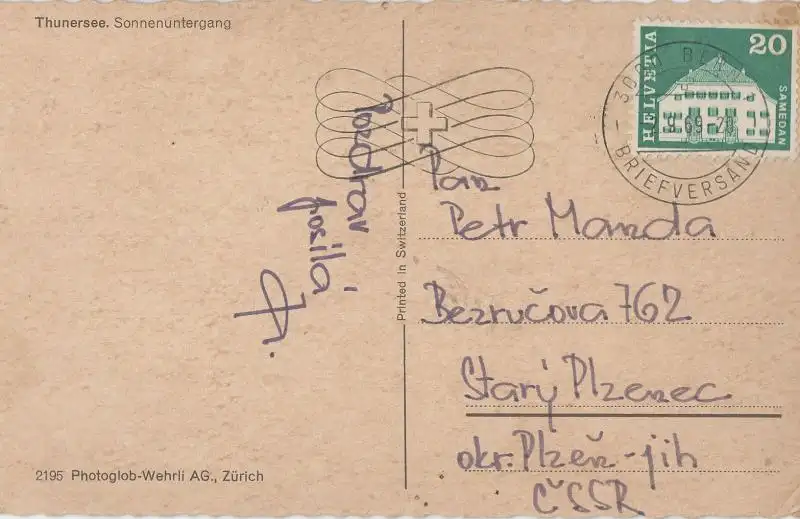 Thunersee. Sonnenuntergang
HELVETIA
20
SAMEDAN
BRIEFVERSAND
Pozdrav
posílá
Pan
Petr Manda
Bezručova 762
Starý Plzenec
okr. Plzeň-jih
ČSSR
Printed in Switzerland
2195 Photoglob-Wehrli AG., Zürich